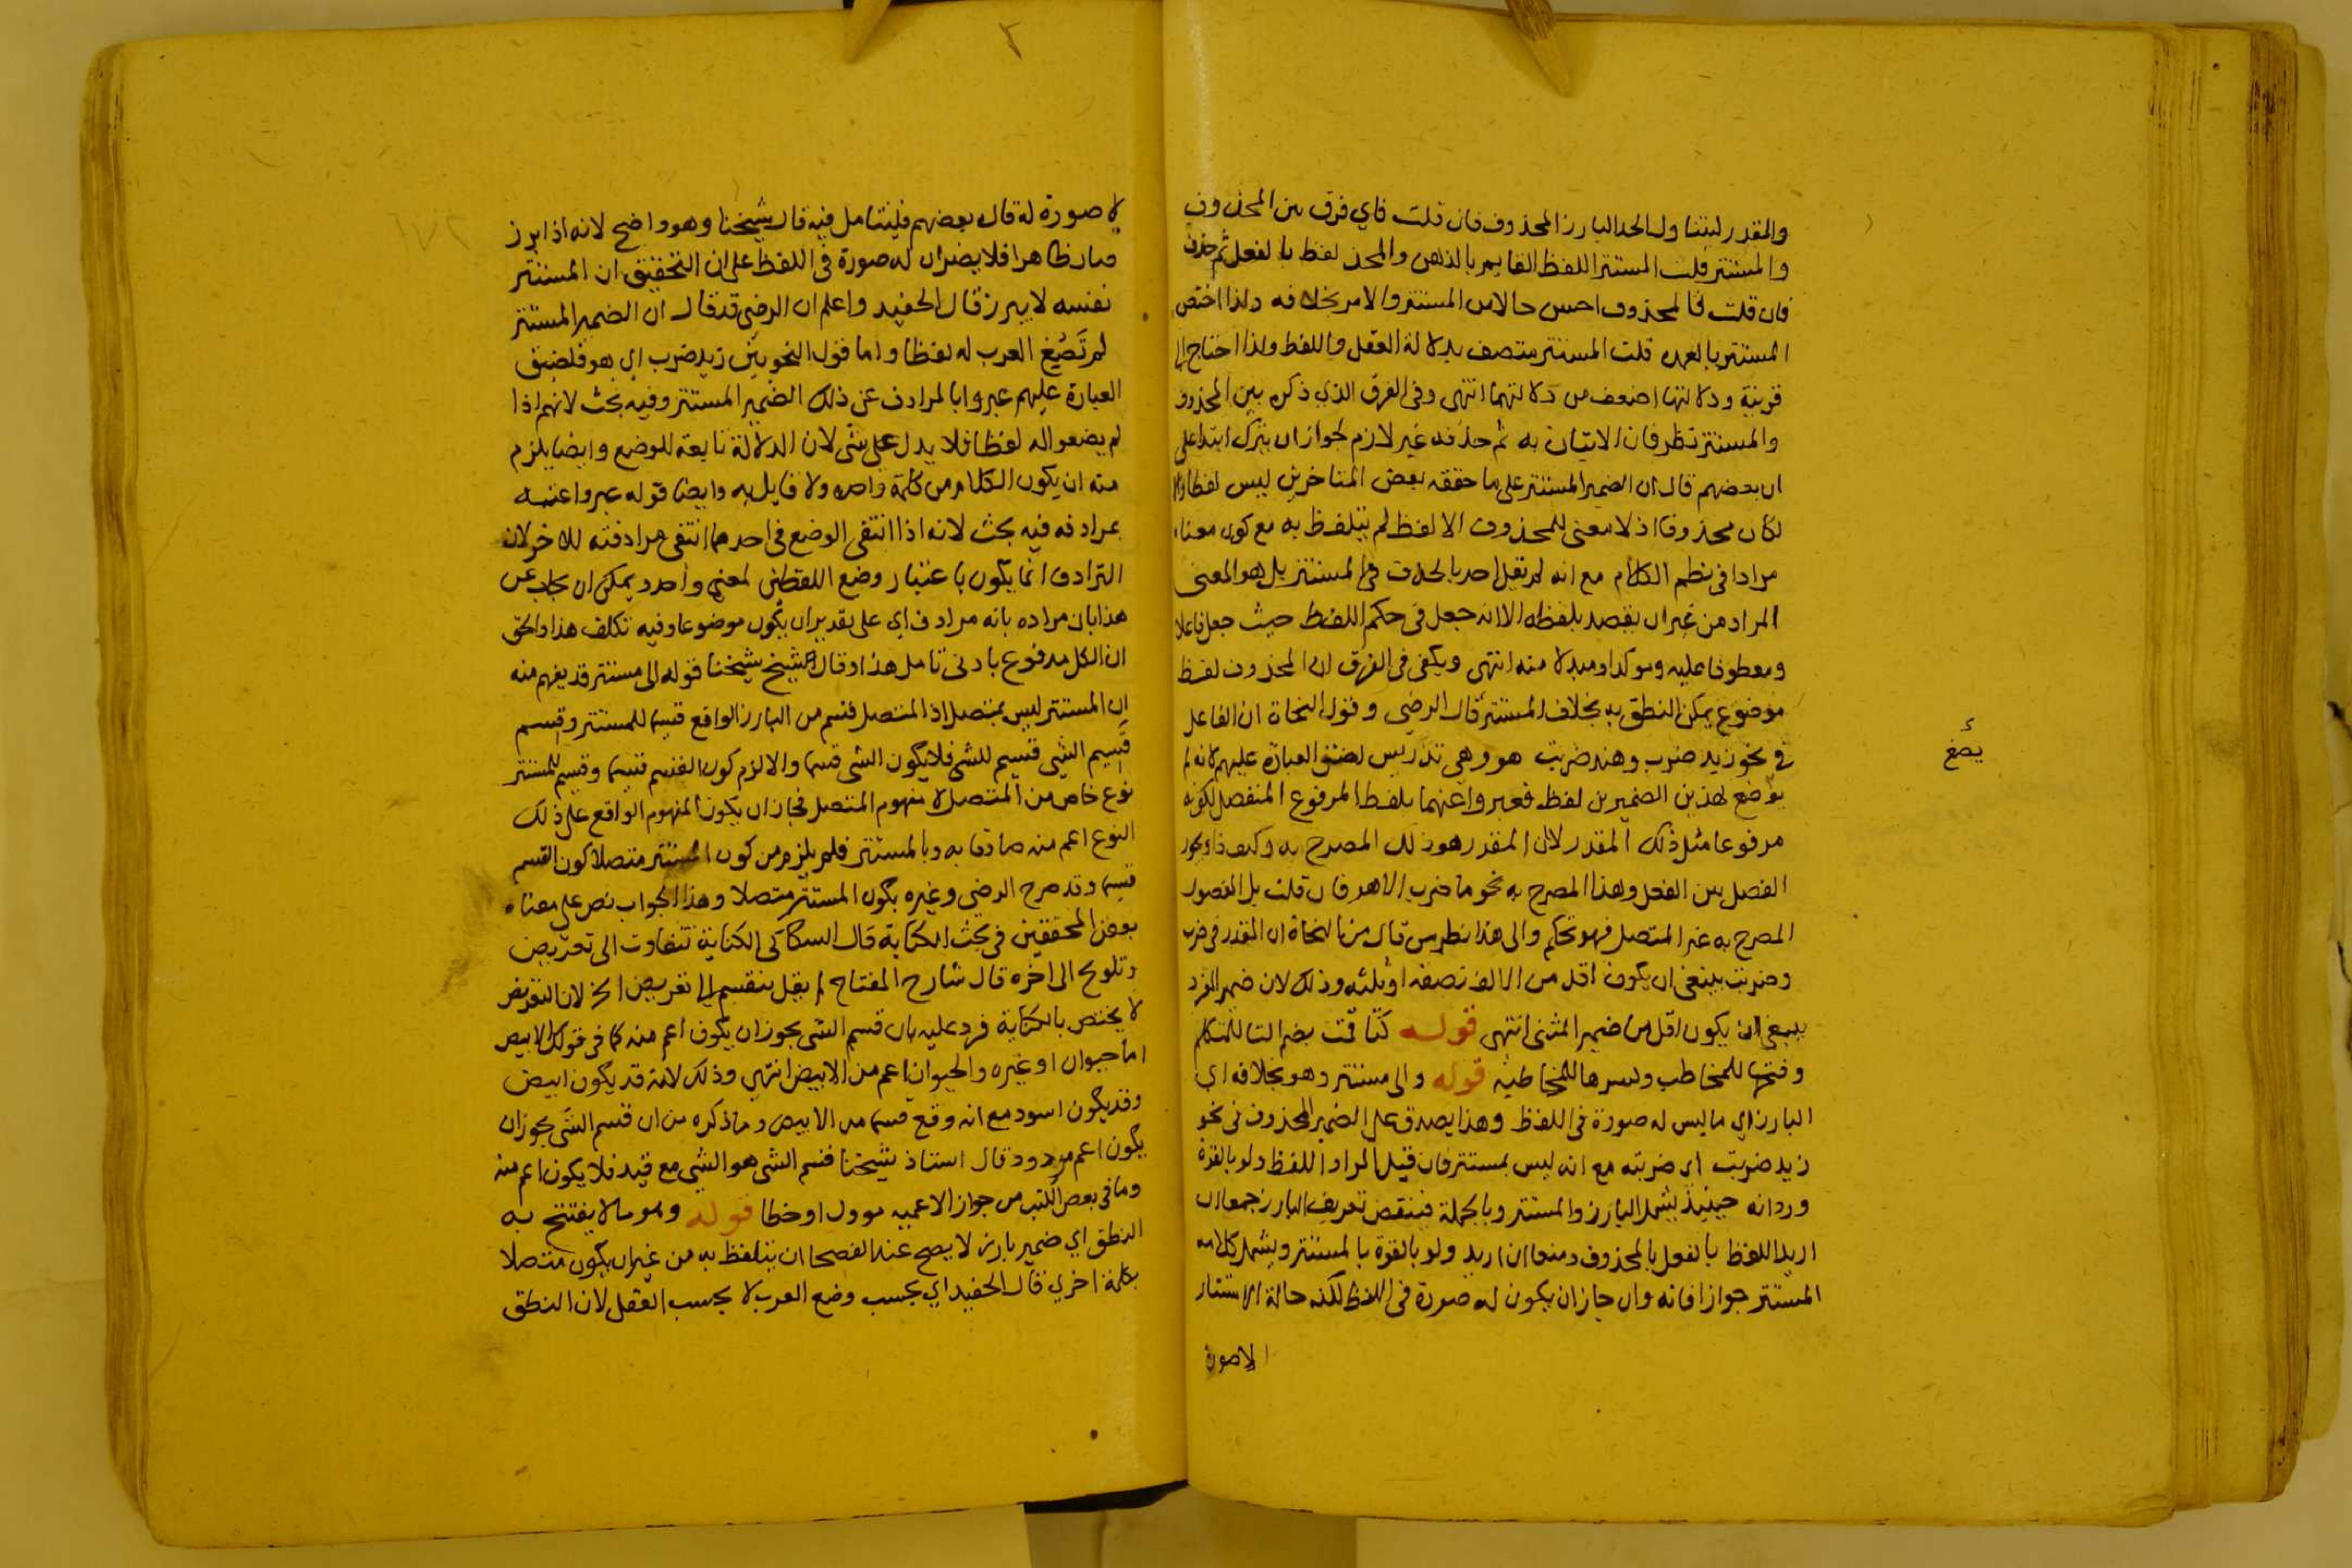 والمقدر ليتناول الحد البارز المحذوف فان قلت فاي فرق بين المحذوف
والمستتر قلت المستتر اللفظ القايم بالذهن والمحذ لفظ بالفعل ثم حذف
فان قلت فالمحذوف احسن حالا من المستتر والامر بخلافه ولذا اختص
المستتر بالعمده قلت المستتر متصف بدلالة العقل واللفظ ولذا احتاج الى
قرينة ودلالتها اضعف من دلالتهما انتهى وفى الفرق الذي ذكره بين المحذوف
والمستتر نظر فان الاتيان به ثم حذفه غير لازم لجواز ان يترك ابتدا على
ان بعضهم قال ان الضمير المستتر على ما حققه بعض المتاخرين ليس لفظا والا
لكان محذوفا اذ لا معنى للمحذوف الا لفظ لم يتلفظ به مع كون معناه
مرادا فى نظم الكلام مع انه لم يقل احد بالحذف فى المستتر بل هو المعنى
المراد من غير ان يقصد بلفظه الا انه جعل فى حكم اللفظ حيث جعل فاعلا
ومعطوفا عليه وموكدا ومبدلا منه انتهى ويكفى فى الفرق ان المحذوف لفظ
موضوع يمكن النطق به بخلاف المستتر قال الرضى وقول النحاة ان الفاعل
فى نحو زيد ضرب وهند ضربت هو وهى تدريس لضيق العبارة عليهم لانه لم
يوضع لهذين الضميرين لفظ فعبروا عنهما بلفظ المرفوع المنفصل لكونه
مرفوعا مثل ذلك المقدر لا ان المقدر هو ذلك المصرح به وكيف ذا ويجوز
الفصل بين الفعل وهذا المصرح به نحو ما ضرب الا هو فان قلت بل المفصول
المصرح به غير المتصل فهو تحكم والى هذا نظر من قال من النحاة ان المقدر فى ضرب
وضربت ينبغى ان يكون اقل من الالف نصفه او ثلثه وذلك لان ضمير المفرد
ينبغى ان يكون اقل من ضمير المثنى انتهى قوله كتا قمت بضم التا للمتكلم
وفتحها للمخاطب وكسرها للمخاطبة قوله والى مستتر وهو بخلافه اي
البارز اي ما ليس له صورة فى اللفظ وهذا يصدق على الضمير المحذوف فى نحو
زيد ضربت اي ضربته مع انه ليس بمستتر فان قيل المراد اللفظ ولو بالقوة
ورد انه حينيذ يشمل البارز والمستتر وبالجملة فينتقض تعريف البارز جمعا ان
اريد اللفظ بالفعل بالمحذوف ومنعا ان اريد ولو بالقوة بالمستتر ويشمل كلامه
المستتر جوازا فانه وان جاز ان يكون له صورة فى اللفظ لكنه حالة الاستتار
لاصورة
يُصَغ
٢
١٧٢
لا صورة له قال بعضهم فليتامل فيه قال شيخنا وهو واضح لانه اذا برز
صار ظاهرا فلا يضر ان له صورة فى اللفظ على ان التحقيق ان المستتر
نفسه لا يبرز قال الحفيد واعلم ان الرضى قد قال ان الضمير المستتر
لم تَصُغ العرب له لفظا واما قول النحويين زيد ضرب اي هو فلضيق
العبارة عليهم عبروا بالمرادف عن ذلك الضمير المستتر وفيه بحث لانهم اذا
لم يضعوا له لفظا فلا يدل على شى لان الدلالة تابعة للوضع وايضا يلزم
منه ان يكون الكلام من كلمة واحده ولا قايل به وايضا قوله عبروا عنه
بمرادفه فيه بحث لانه اذا انتفى الوضع فى احدهما انتفى مرادفته للاخر لان
الترادف انما يكون باعتبار وضع اللفظين لمعنى واحد ويمكن ان يجاب عن
هذا بان مراده بانه مرادف اي على تقدير ان يكون موضوعا وفيه تكلف هذا والحق
ان الكل مدفوع بادنى تامل هذا وقال شيخ شيخنا قوله الى مستتر قد يفهم منه
ان المستتر ليس بمتصل اذ المتصل قسم من البارز الواقع قسيما للمستتر وقسم
قسيم الشى قسيم للشى فلا يكون الشى قسما والا لزم كون القسم قسيما وقسيم المستتر
نوع خاص من المتصل لا مفهوم المتصل فجاز ان يكون المفهوم الواقع على ذلك
النوع اعم منه صادقا به وبالمستتر فلم يلزم من كون المستتر متصلا كون القسم
قسيما وقد صرح الرضى وغيره بكون المستتر متصلا وهذا الجواب نص على معناه
بعض المحققين فى بحث الكناية قال السكاكى الكناية تتفاوت الى تعريض
وتلويح الى اخره قال شارح المفتاح لم يقل تنقسم الى تعريض الخ لان التعريض
لا يختص بالكناية فرد عليه بان قسم الشى يجوز ان يكون اعم منه كما فى قولك الابيض
اما حيوان او غيره والحيوان اعم من الابيض انتهى وذلك لانه قد يكون ابيض
وقد يكون اسود مع انه وقع قسما من الابيض وما ذكره من ان قسم الشى يجوز ان
يكون اعم مردود قال استاذ شيخنا قسم الشى هو الشى مع قيد فلا يكون اعم منه
وما فى بعض الكتب من جواز الاعميه موول او خطا قوله وهو ما لا يفتتح به
النطق اي ضمير بارز لا يصح عند الفصحا ان يتلفظ به من غير ان يكون متصلا
بكلمة اخري قال الحفيد اي بحسب وضع العرب لا بحسب العقل لان النطق